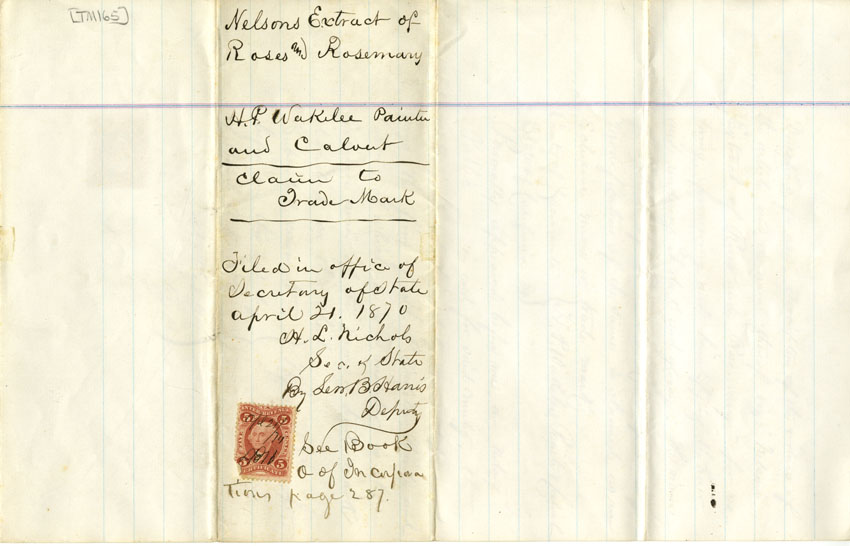 [TM165]
Nelsons Extract of
Roses and Rosemary
H.P. Wakelee Painter
and Calvert
Claim to
Trade Mark
Filed in office of
Secretary of State
april 21. 1870
H. L. Nichols
Sec. of State
By Lew. B. Harris
Deputy
See Book
O of Incorpora
tions page 287.
5 5
5 5